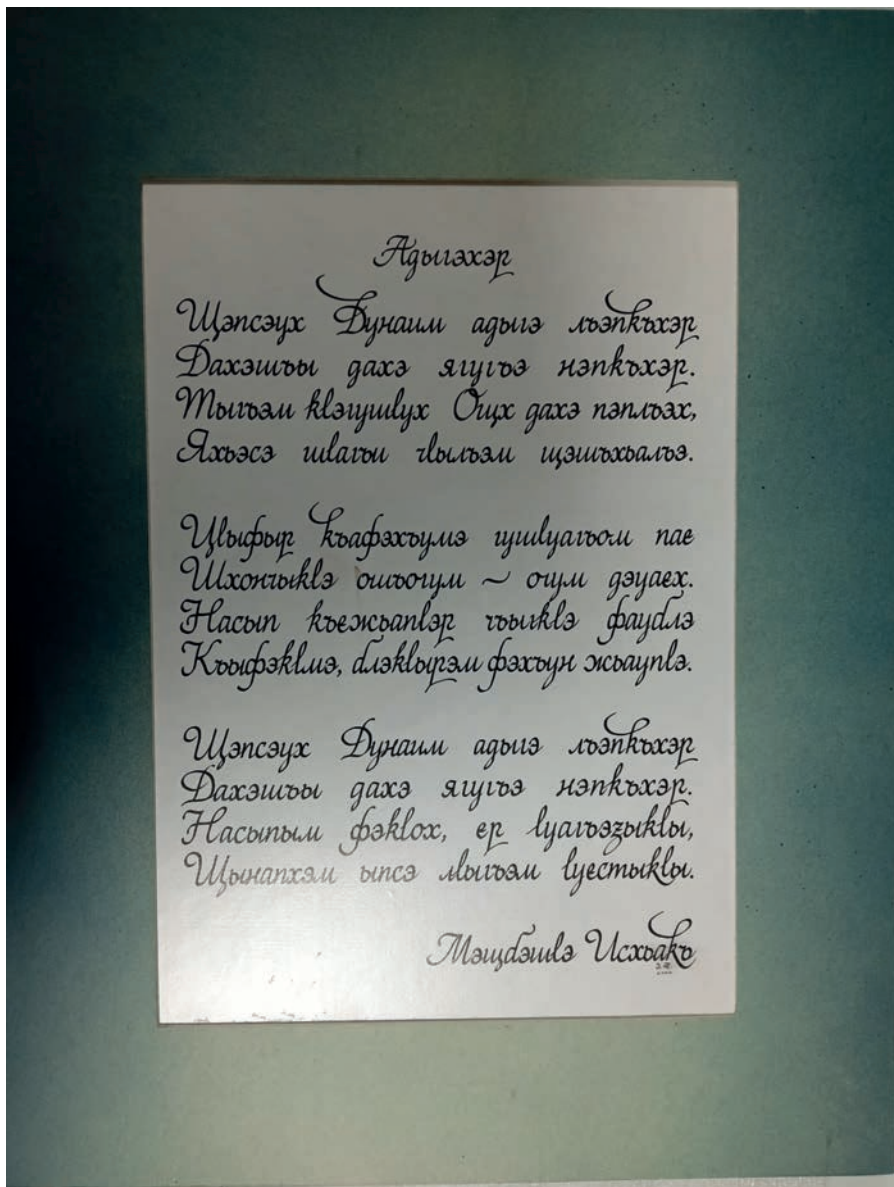 Адыгэхэр
Щэпсэух Дунаим адыгэ лъэпкъхэр
Дахэшъы дахэ ягугъэ нэпкъхэр.
Тыгъэм кӏэгушӏух Ощх дахэ пэплъэх,
Яхьэсэ шӏагъи чӏылъэм щэшъхьалъэ.
Цӏыфыр къафэхъумэ гушӏуагъом пае
Шхончыкӏэ ошъогум ~ огум дэуаех.
Насып къежьапӏэр чъыгкӏэ фаублэ
Къыфэкӏмэ, блэкӏырэм фэхъун жьаупӏэ.
Щэпсэух Дунаим адыгэ лъэпкъхэр
Дахэшъы дахэ ягугъэ нэпкъхэр.
Насыпым фэкӏох, ер ӏуагъэзыкӏы,
Щынапхэм ыпсэ мӏыгъэм ӏуестыкӏы.
Мэщбэшӏэ Исхьакъ